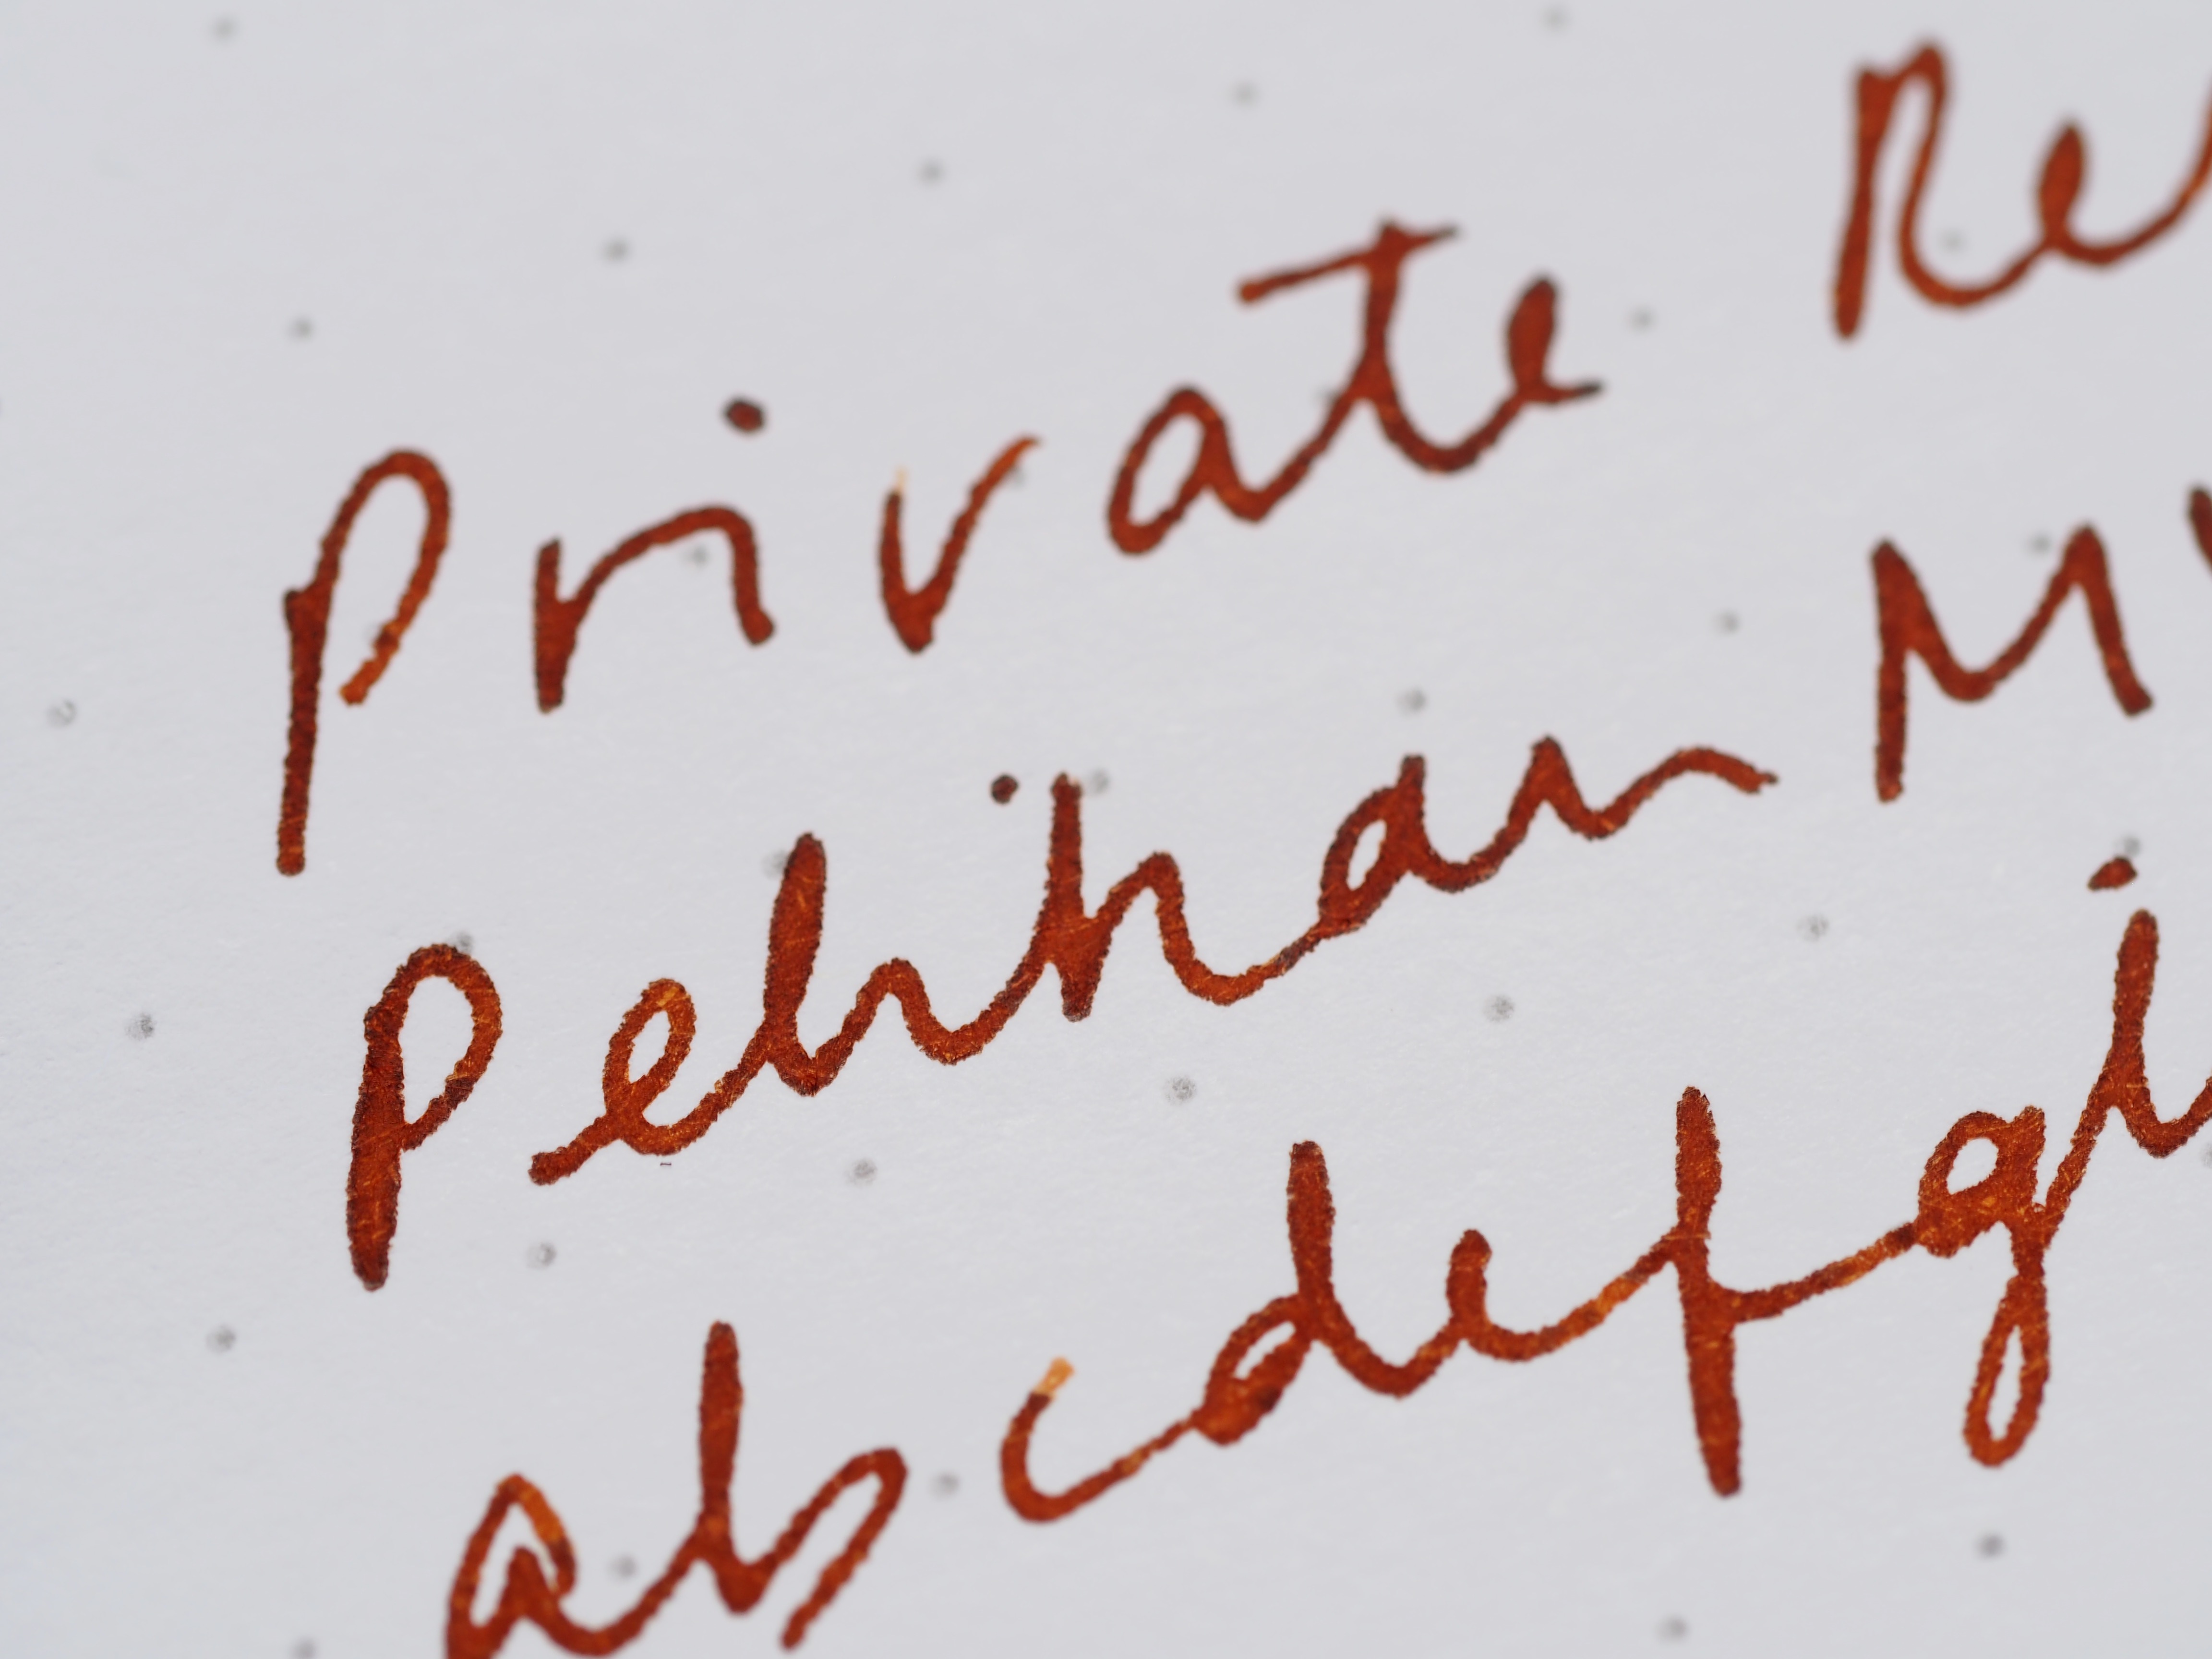 Private Re
Pelikan M
abcdefg